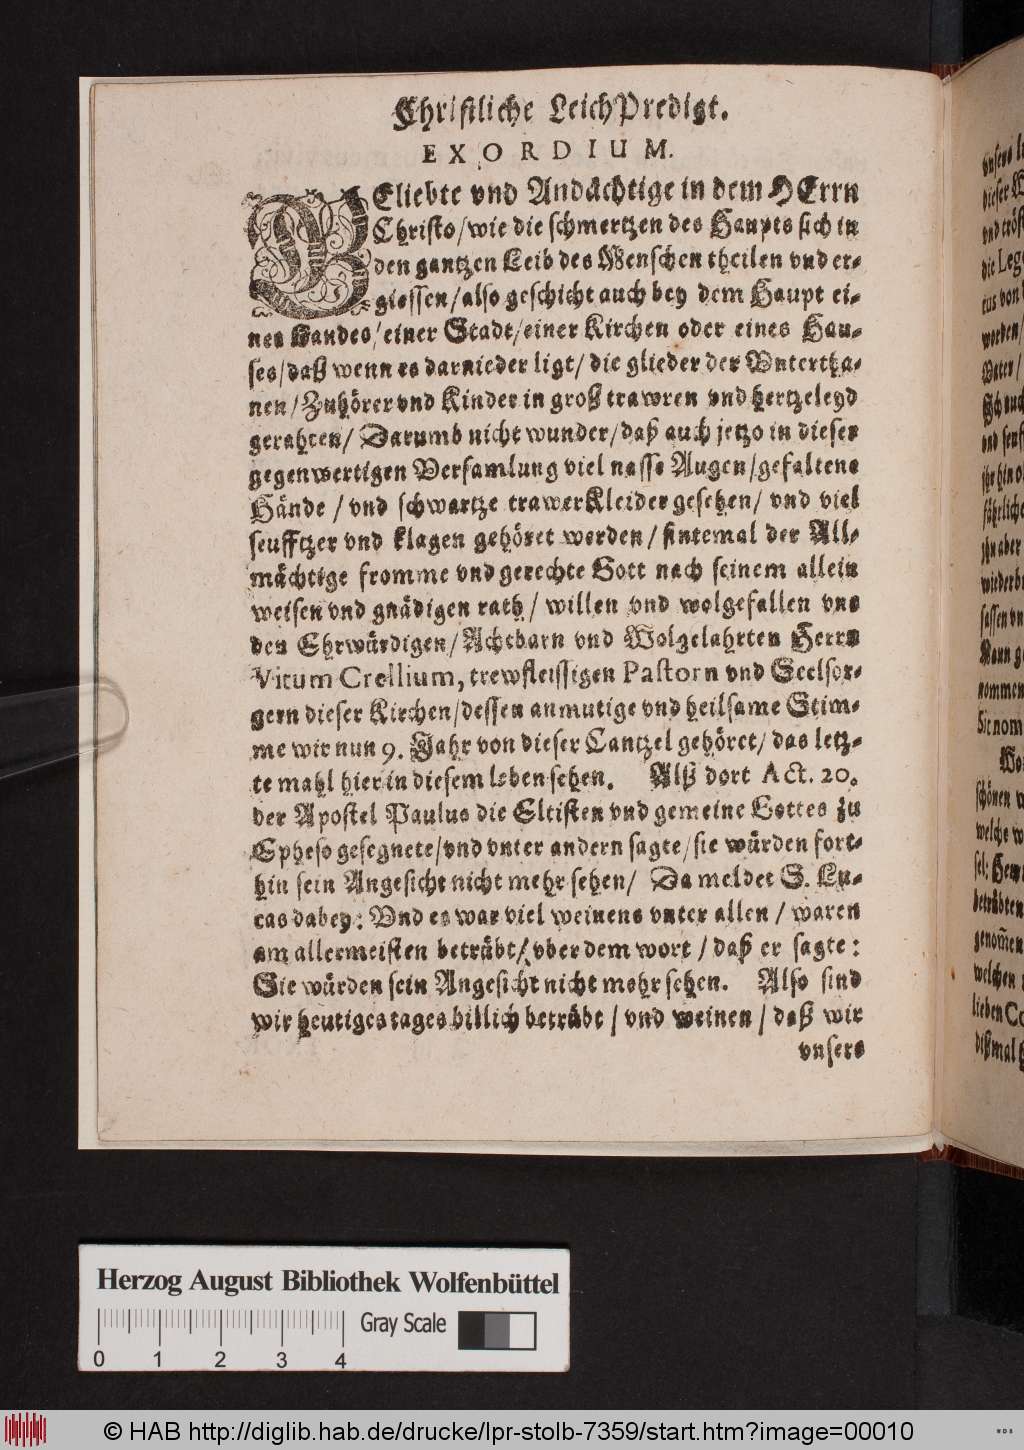 Christliche LeichPredigt.
EXORDIUM.
GEliebte vnd Andächtige in dem HErrn
Christo/wie die schmertzen des Haupts sich in
den gantzen Leib des Menschen theilen vnd er-
giessen/also geschicht auch bey dem Haupt ei-
nes Landes/einer Stadt/einer Kirchen oder eines Hau-
ses/daß wenn es darnieder ligt/die glieder der Vntertha-
nen/Zuhörer vnd Kinder in groß trawren vnd hertzeleyd
gerahten/ Darumb nicht wunder/daß auch jetzo in dieser
gegenwertigen Versamlung viel nasse Augen/gefaltene
Hände/vnd schwartze trawerKleider gesehen/vnd viel
seufftzer vnd klagen gehöret werden/sintemal der All-
mächtige fromme vnd gerechte Gott nach seinem allein
weisen vnd gnädigen rath/willen vnd wolgefallen vns
den Ehrwürdigen/Achtbarn vnd Wolgelahrten Herrn
Vitum Crellium, trewfleissigen Pastorn vnd Seelsor-
gern dieser Kirchen/dessen anmutige vnd heilsame Stim-
me wir nun 9. Jahr von dieser Cantzel gehöret/das letz-
te mahl hier in diesem leben sehen. Alß dort Act. 20.
der Apostel Paulus die Eltisten vnd gemeine Gottes zu
Epheso gesegnete/vnd vnter andern sagte/sie würden fort-
hin sein Angesicht nicht mehr sehen/ Da meldet S. Lu-
cas dabey: Vnd es war viel weinens vnter allen/waren
am allermeisten betrübt/vber dem wort/daß er sagte:
Sie würden sein Angesicht nicht mehr sehen. Also sind
wir heutiges tages billich betrübt/vnd weinen/daß wir
vnsers
vnsers
dieser
vnd
die
tus von
worden/
Vater/
vnd
ihr hin
zhn aber
sassen vn
Mann
nommen
Sie nom
schönen
welche
betrübten
genom̄en
welchen
lieben
dißmal
Herzog August Bibliothek Wolfenbüttel
Gray Scale
0 1 2 3 4
© HAB http://diglib.hab.de/drucke/lpr-stolb-7359/start.htm?image=00010